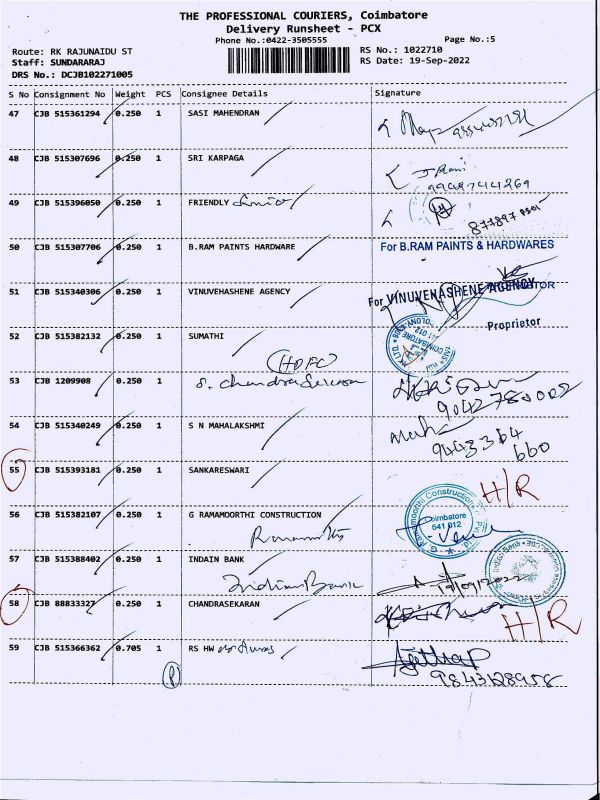 THE PROFESSIONAL COURIERS, Coimbatore
Delivery Runsheet - PCX
Phone No.:0422-3505555
Page No.:5
Route: RK RAJUNAIDU ST
RS No.: 1022710
Staff: SUNDARARAJ
RS Date: 19-Sep-2022
DRS No.: DCJB102271005
S No Consignment No Weight PCS Consignee Details Signature
47 CJB 515361294 0.250 1 SASI MAHENDRAN
48 CJB 515307696 0.250 1 SRI KARPAGA
49 CJB 515396050 0.250 1 FRIENDLY
50 CJB 515307706 0.250 1 B.RAM PAINTS HARDWARE
For B.RAM PAINTS & HARDWARES
51 CJB 515340306 0.250 1 VINUVEHASHENE AGENCY
For VINUVEHASHENE AGENCY
Proprietor
52 CJB 515382132 0.250 1 SUMATHI
HDFC
53 CJB 1209908 0.250 1 S. Chandra
9042780002
54 CJB 515340249 0.250 1 S N MAHALAKSHMI
9443364
660
55 CJB 515393181 0.250 1 SANKARESWARI
H/R
56 CJB 515382107 0.250 1 G RAMAMOORTHI CONSTRUCTION
G Ramamoorthi Construction
Coimbatore
641 012
57 CJB 515388402 0.250 1 INDAIN BANK
Indian Bank
58 CJB 88833327 0.250 1 CHANDRASEKARAN
H/R
59 CJB 515366362 0.705 1 RS HW
P
9843128958